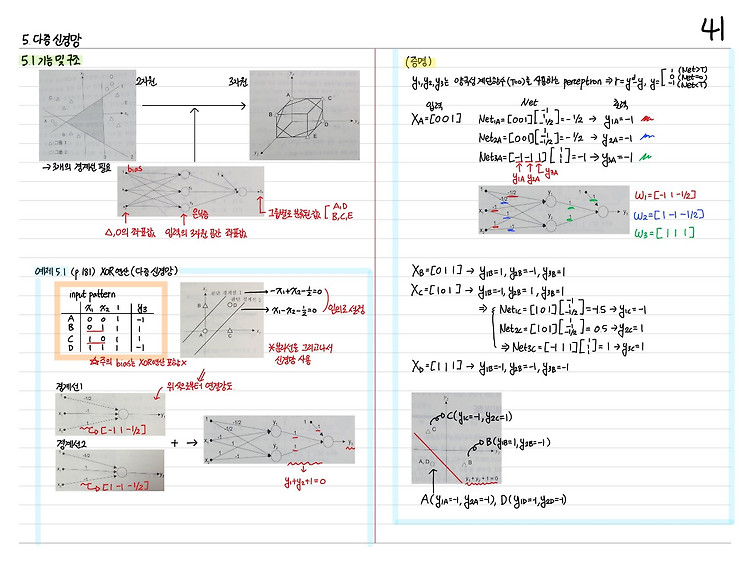 41
5 다층 신경망
5.1 기능 및 구조
2차원
3차원
→ 3개의 경계선 필요
bias
△,O의 좌표값
은닉층
입력의 3차원 공간 좌표값
그룹별로 분류된 값
A,D
B,C,E
예제 5.1 (p 181) XOR 연산 (다층 신경망)
input pattern
x₁ x₂ 1 y₃
A 0 0 1 -1
B 0 1 1 1
C 1 0 1 1
D 1 1 1 -1
판단 경계선 1
판단 경계선 2
-x₁+x₂-½=0
x₁-x₂-½=0
임의로 설정
※ 분리선을 그리고나서
신경망 사용
위쪽으로부터 연결강도
경계선1
[-1 1 -1/2]
경계선2
[1 -1 -1/2]
y₁+y₂+1=0
(증명)
y₁,y₂,y₃는 양극성 계단함수(T=0)를 사용하는 perceptron ⇒ r=yᵈ-y, y=[1 (Net>T)
0 (Net=0)
-1 (Net<T)
입력 Net 출력
X_A=[0 0 1] Net₁A=[0 0 1][-1 1 -1/2]=-1/2 → y₁A=-1
Net₂A=[0 0 1][1 -1 -1/2]=-1/2 → y₂A=-1
Net₃A=[-1 -1 1][1 1 1]=-1 → y₃A=-1
y₁A y₂A y₃A
w₁=[-1 1 -1/2]
w₂=[1 -1 -1/2]
w₃=[1 1 1]
X_B=[0 1 1] → y₁B=1, y₂B=-1, y₃B=1
X_C=[1 0 1] → y₁B=-1, y₂B=1, y₃B=1
⇒ Net₁C=[1 0 1][-1 1 -1/2]=-1.5 → y₁C=-1
Net₂C=[1 0 1][1 -1 -1/2]=0.5 → y₂C=1
⇒ Net₃C=[-1 1 1][1 1 1]=1 → y₃C=1
X_D=[1 1 1] → y₁B=-1, y₂B=-1, y₃B=-1
C(y₁C=-1, y₂C=1)
B(y₁B=1, y₂B=-1)
A, D
y₁+y₂+1=0
A(y₁A=-1, y₂A=-1), D(y₁D=-1, y₂D=-1)